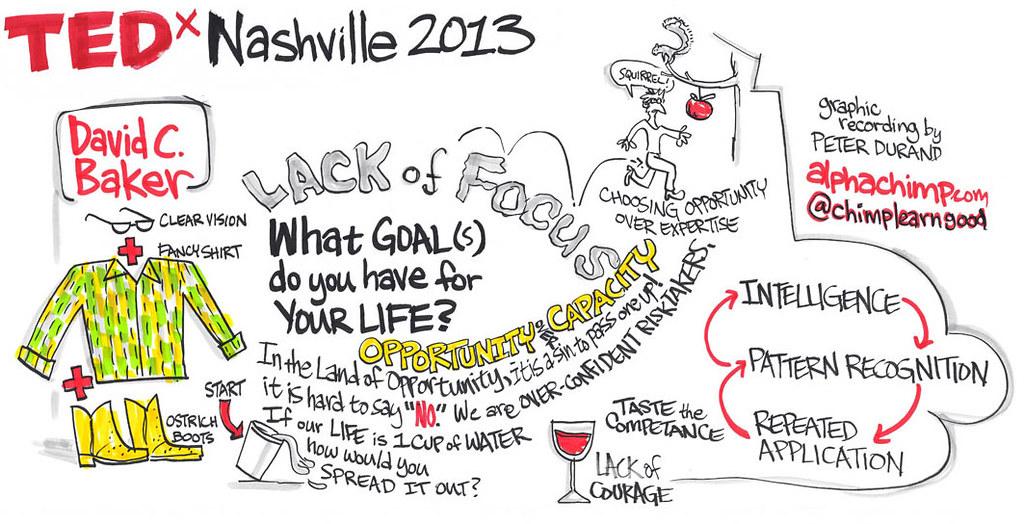 TEDx Nashville 2013
David C.
Baker
CLEAR VISION
FANCY SHIRT
OSTRICH
BOOTS
LACK of FOCUS
SQUIRREL!
CHOOSING OPPORTUNITY
OVER EXPERTISE
What GOAL(s)
do you have for
YOUR LIFE?
OPPORTUNITY CAPACITY
In the Land of Opportunity, it is a sin to pass one up!
it is hard to say "NO." We are OVER-CONFIDENT RISKTAKERS.
START
If our LIFE is 1 CUP of WATER
how would you
SPREAD IT OUT?
TASTE the
COMPETANCE
LACK of
COURAGE
INTELLIGENCE
PATTERN RECOGNITION
REPEATED
APPLICATION
graphic
recording by
PETER DURAND
alphachimp.com
@chimplearngood